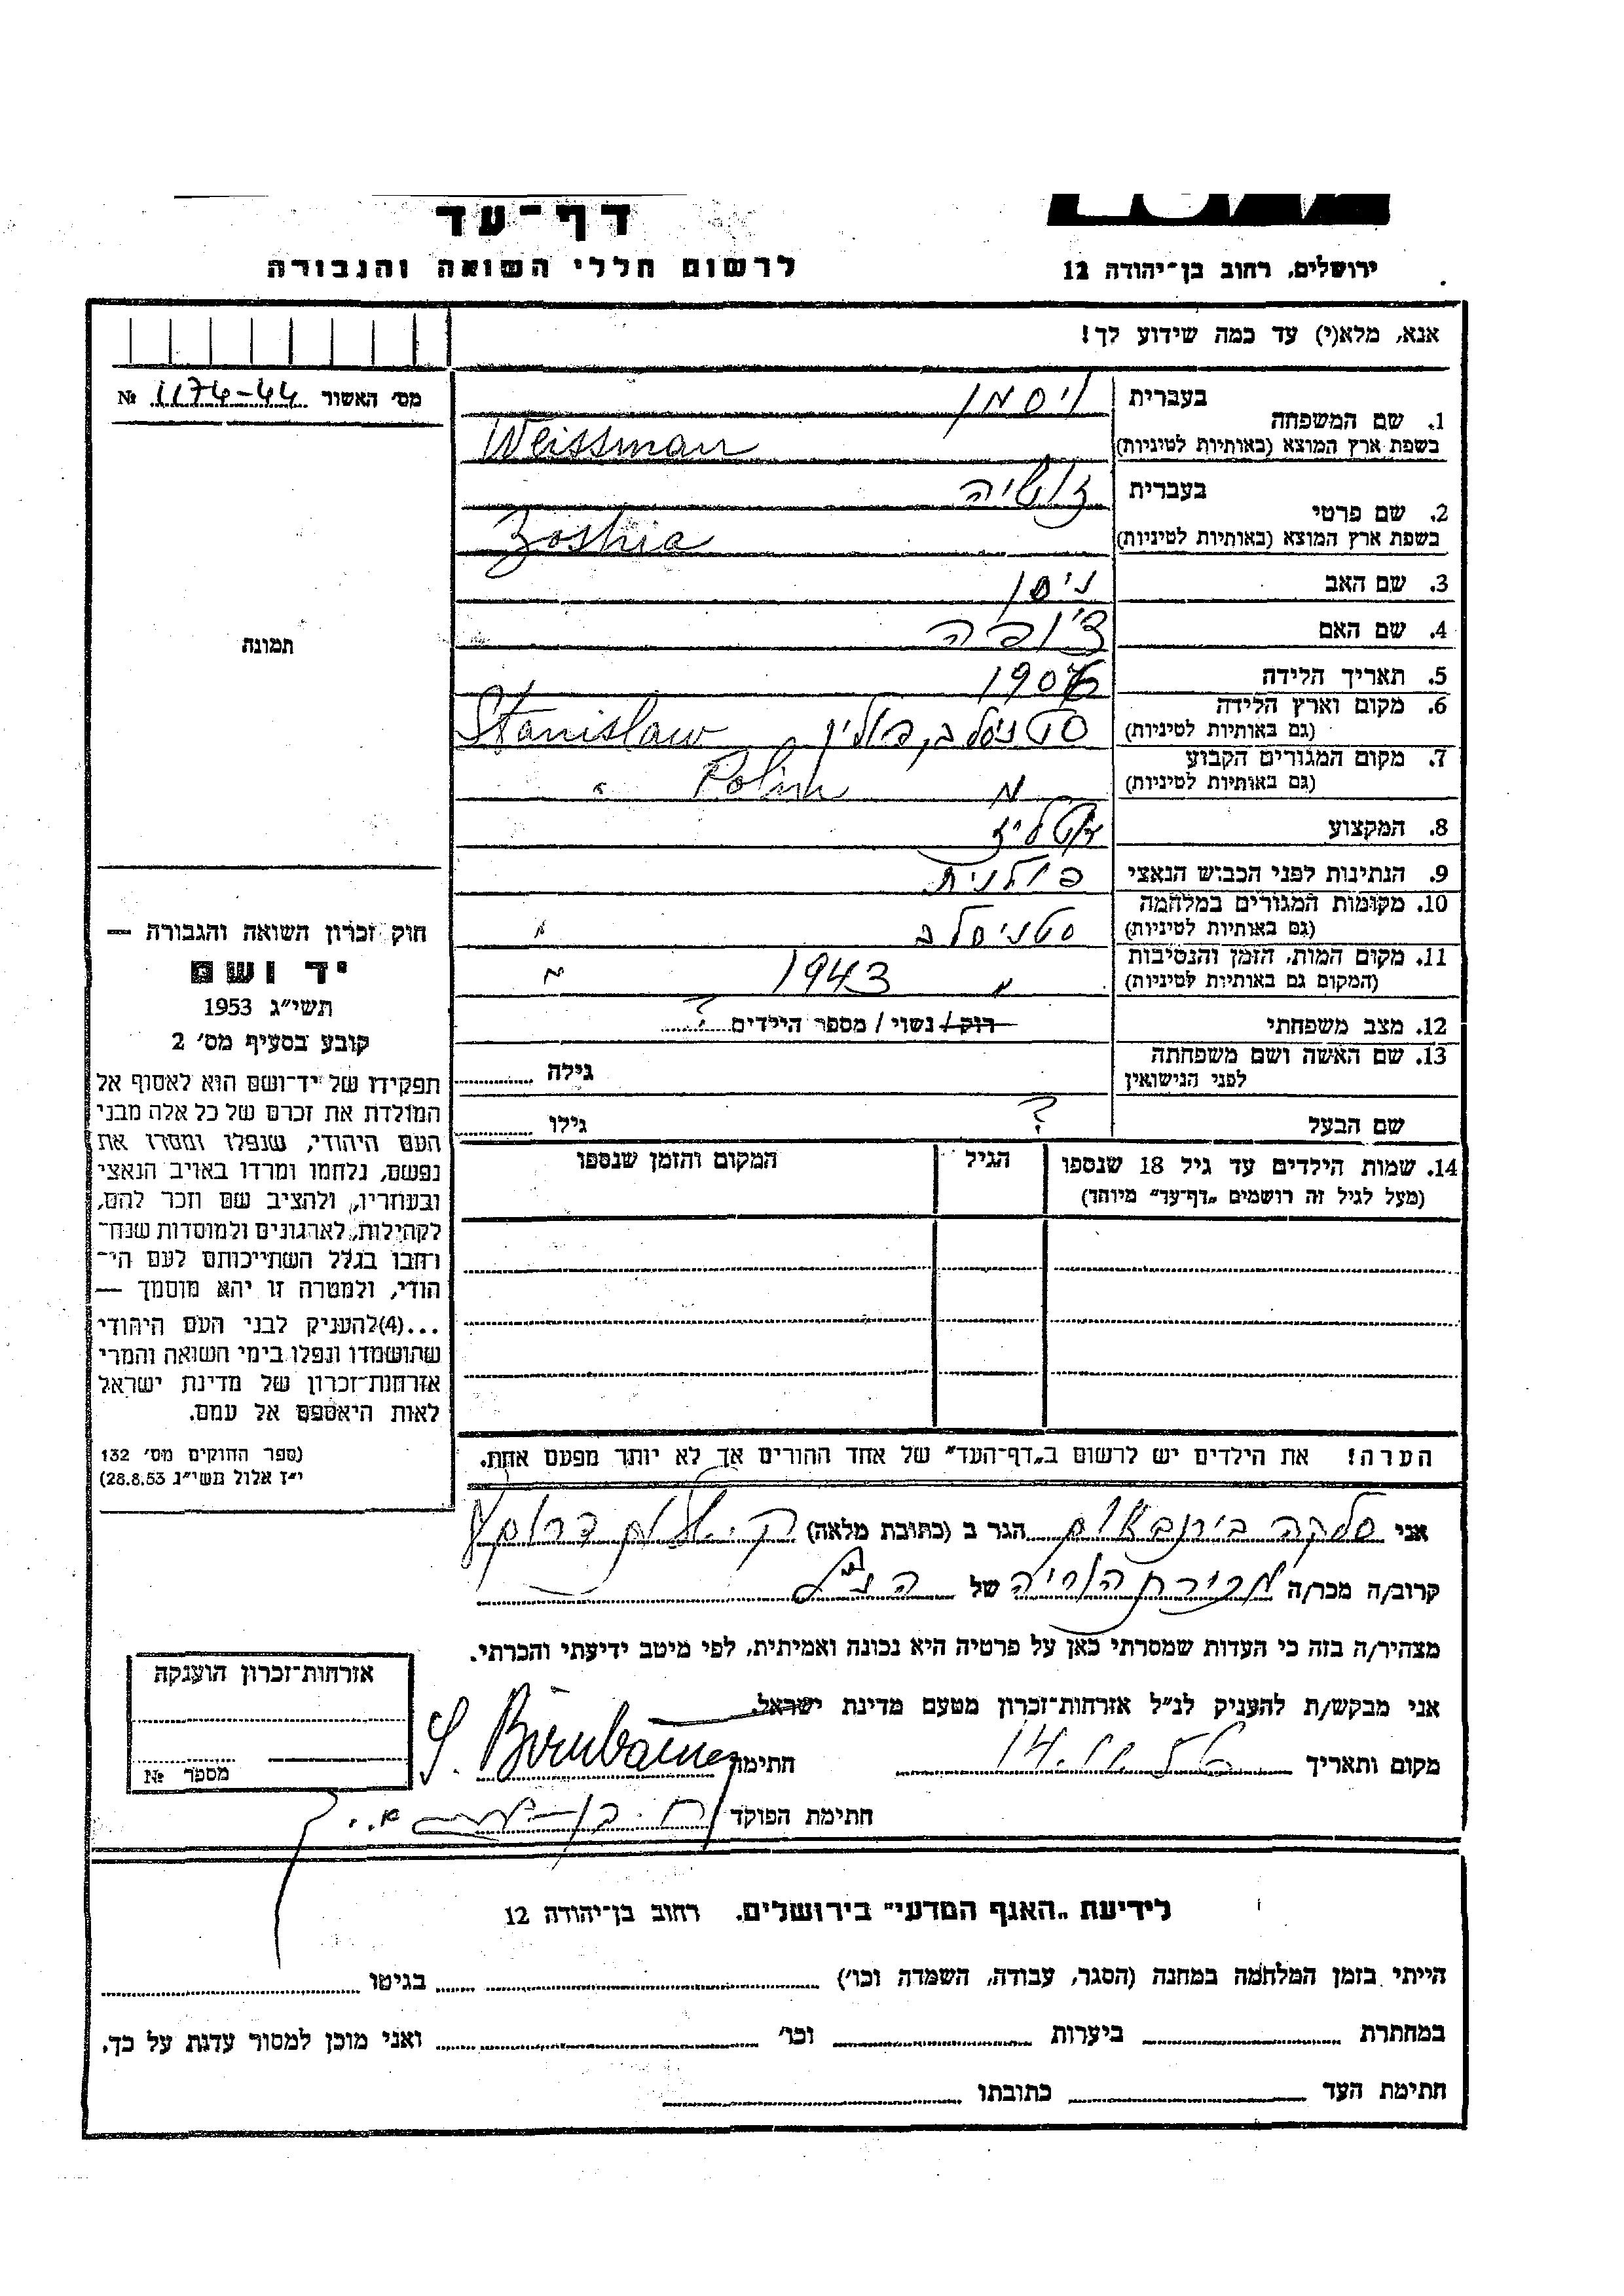 דף־עד
לרשום חללי השואה והגבורה
ירושלים, רחוב בן־יהודה 12
אנא, מלא(י) עד כמה שידוע לך!
מס׳ האשור 1174-44 №
1. שם המשפחה
בעברית ויסמן
בשפת ארץ המוצא (באותיות לטיניות) Weissman
2. שם פרטי
בעברית זושיה
בשפת ארץ המוצא (באותיות לטיניות) Zoshia
3. שם האב ניסן
4. שם האם
5. תאריך הלידה
6. מקום וארץ הלידה
(גם באותיות לטיניות) סטניסלב, פולין Stanislaw
7. מקום המגורים הקבוע
(גם באותיות לטיניות) " Polin "
8. המקצוע
9. הנתינות לפני הכבוש הנאצי פולנית
10. מקומות המגורים במלחמה
(גם באותיות לטיניות) סטניסלב "
11. מקום המות, הזמן והנסיבות
(המקום גם באותיות לטיניות) " 1943 "
12. מצב משפחתי רוק / נשוי / מספר הילדים ?
13. שם האשה ושם משפחתה
לפני הנישואין גילה
שם הבעל ? גילו
14. שמות הילדים עד גיל 18 שנספו
(מעל לגיל זה רושמים „דף־עד״ מיוחד)
הגיל
המקום והזמן שנספו
תמונה
חוק זכרון השואה והגבורה —
יד ושם
תשי״ג 1953
קובע בסעיף מס׳ 2
תפקידו של יד־ושם הוא לאסוף אל
המולדת את זכרם של כל אלה מבני
העם היהודי, שנפלו ומסרו את
נפשם, נלחמו ומרדו באויב הנאצי
ובעוזריו, ולהציב שם וזכר להם,
לקהילות, לארגונים ולמוסדות שנח־
רבו בגלל השתייכותם לעם הי־
הודי, ולמטרה זו יהא מוסמך —
...(4)להעניק לבני העם היהודי
שהושמדו ונפלו בימי השואה והמרי
אזרחות־זכרון של מדינת ישראל
לאות היאספם אל עמם.
(ספר החוקים מס׳ 132
י״ז אלול תשי״ג 28.8.53)
הערה! את הילדים יש לרשום ב„דף־העד״ של אחד ההורים אך לא יותר מפעם אחת.
אני סלקה בירנבאום הגר ב (כתובת מלאה) ק.
קרוב/ה מכר/ה של הנ"ל
מצהיר/ה בזה כי העדות שמסרתי כאן על פרטיה היא נכונה ואמיתית, לפי מיטב ידיעתי והכרתי.
אני מבקש/ת להעניק לנ״ל אזרחות־זכרון מטעם מדינת ישראל.
מקום ותאריך חתימה S. Birnbaum
חתימת הפוקד
אזרחות־זכרון הוענקה
מספר №
לידיעת „האגף המדעי״ בירושלים. רחוב בן־יהודה 12
הייתי בזמן המלחמה במחנה (הסגר, עבודה, השמדה וכו׳) בגיטו
במחתרת ביערות וכו׳ ואני מוכן למסור עדות על כך.
חתימת העד כתובתו